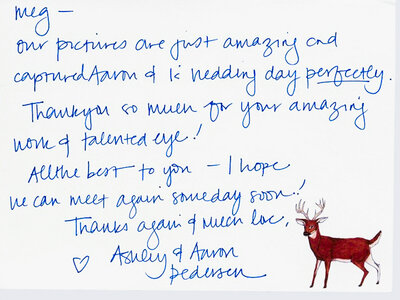 meg —
our pictures are just amazing and
captured Aaron & I's wedding day perfectly.
Thankyou so much for your amazing
work & talented eye!
All the best to you — I hope
we can meet again someday soon!
Thanks again & much love,
♡ Ashley & Aaron
Pedersen